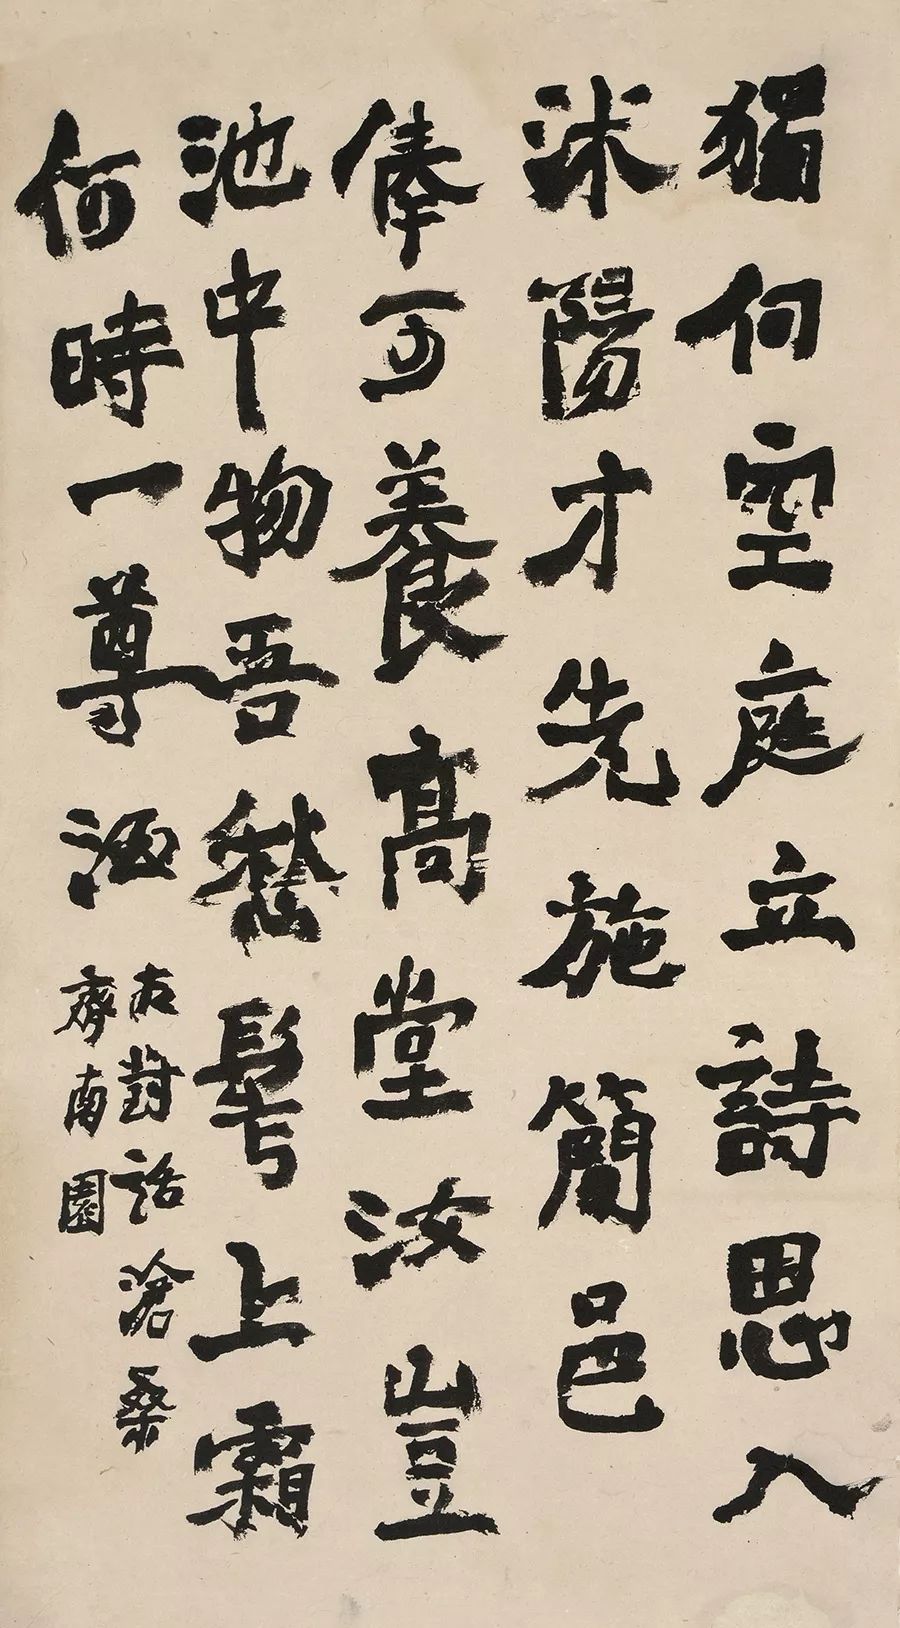 獨向空庭立詩思入
沭陽才先施簡邑
俸可養高堂汝豈
池中物吾愁髩上霜
何時一尊酒
右對話滄桑
齊南園